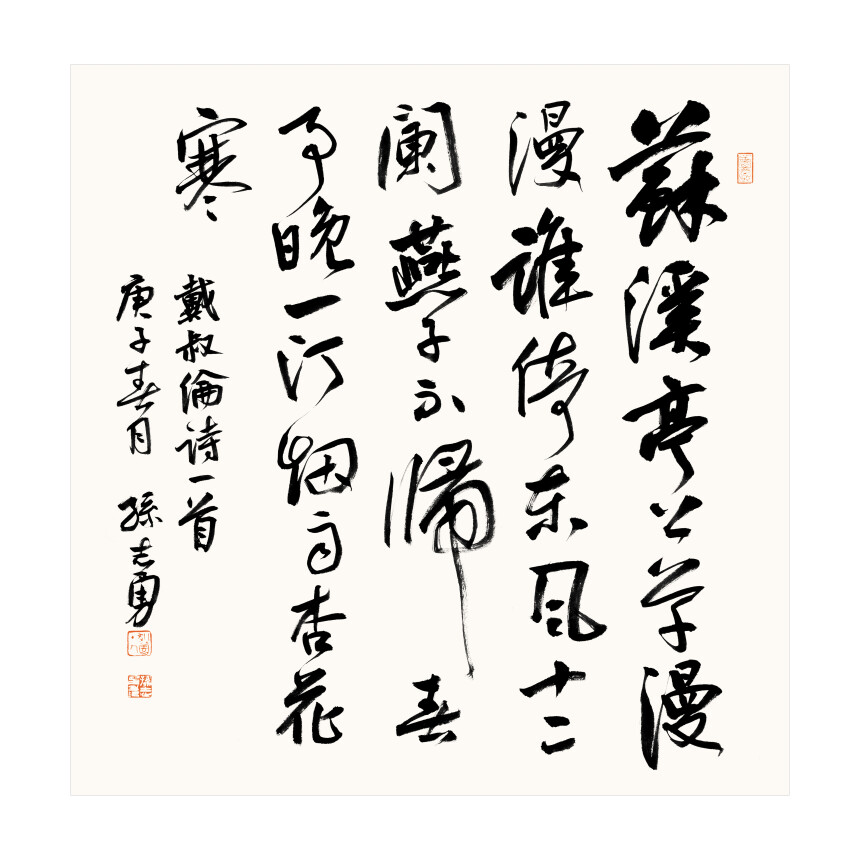 蘇溪亭上草漫
漫誰倚東風十二
闌燕子不歸春
事晚一汀烟雨杏花
寒
戴叔倫詩一首
庚子春月 孫志勇